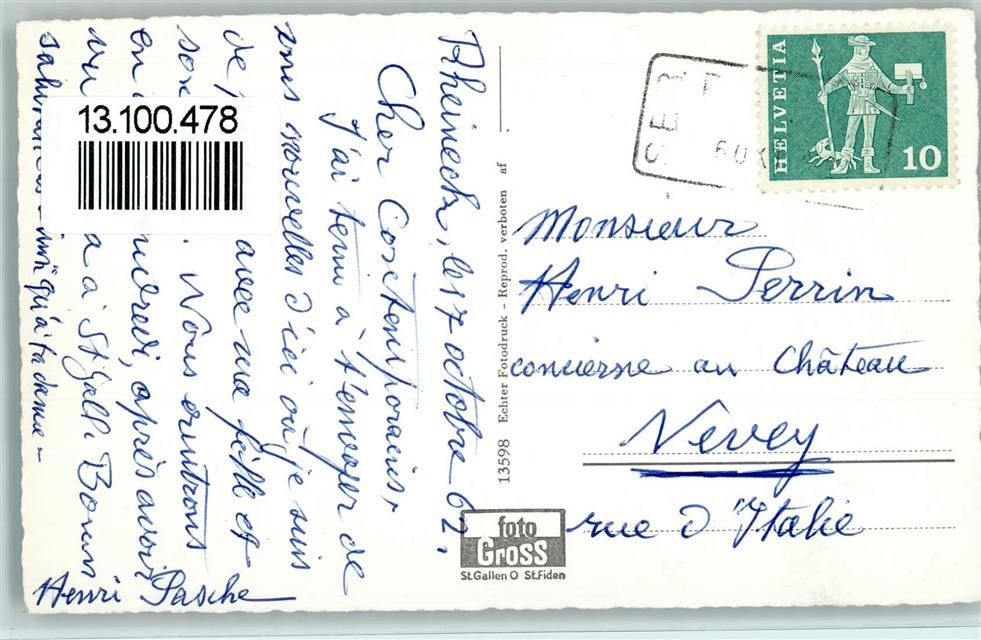 Rheineck, le 17 octobre 62.
Cher Contemporain,
J'ai tenu à t'envoyer de
mes nouvelles d'ici où je suis
de avec ma fille et
son Nous rentrons
en après avoir
vu à St Gall. Bonnes
salutations ainsi qu'à ta dame -
Henri Pasche
13.100.478
13598 Echter Fotodruck - Reprod. verboten af
foto
Gross
St.Gallen O St.Fiden
HELVETIA
10
Monsieur
Henri Perrin
concierge au Château
Vevey
rue d'Italie